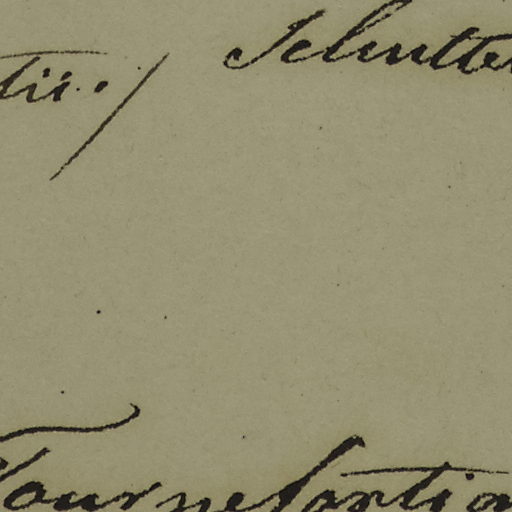 tii.) Schutte
Tournefortia